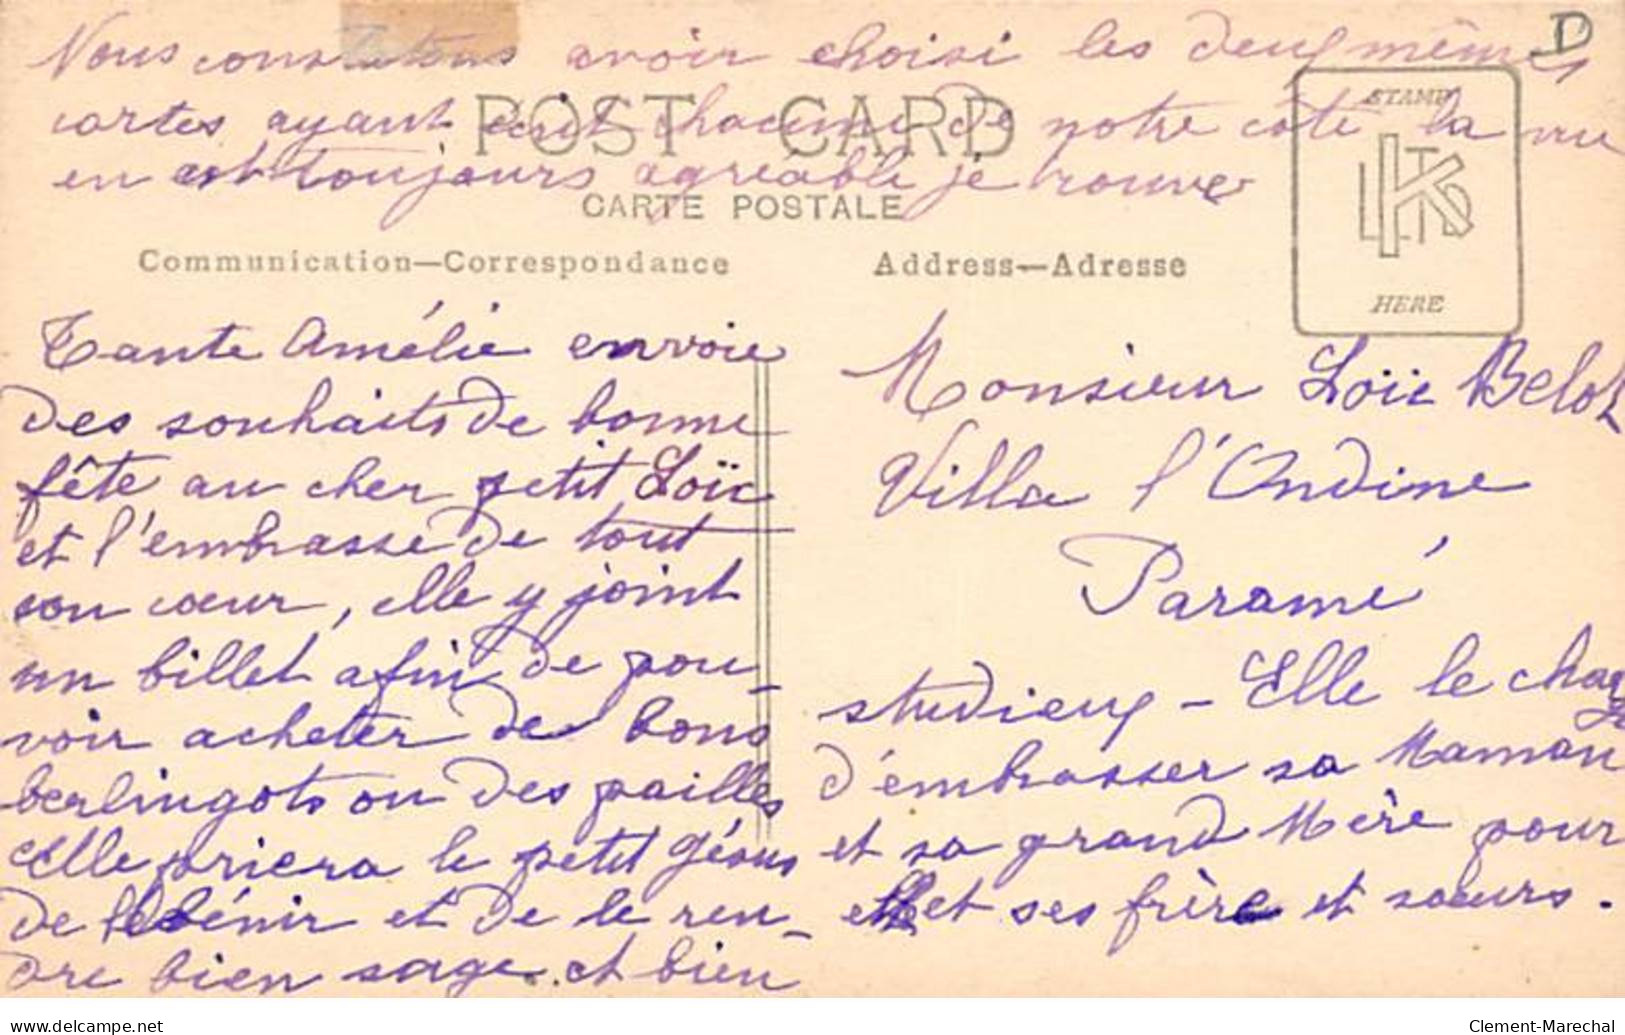 Nous constatons avoir choisi les deux mêmes
cartes ayant écrit chacune de notre côté la vue
en est toujours agréable je trouve
POST CARD
CARTE POSTALE
Communication—Correspondance
Address—Adresse
STAMP
HERE
D
Tante Amélie envoie
des souhaits de bonne
fête au cher petit Loïc
et l'embrasse de tout
son cœur, elle y joint
un billet afin de pou-
voir acheter de bons
berlingots ou des pailles
Elle priera le petit Jésus
de le bénir et de le ren-
dre bien sage et bien
Monsieur Loïc Belot
Villa l'Ondine
Paramé
studieux - Elle le charge
d'embrasser sa Maman
et sa grand Mère pour
elle et ses frère et sœurs.
www.delcampe.net
Clement-Marechal